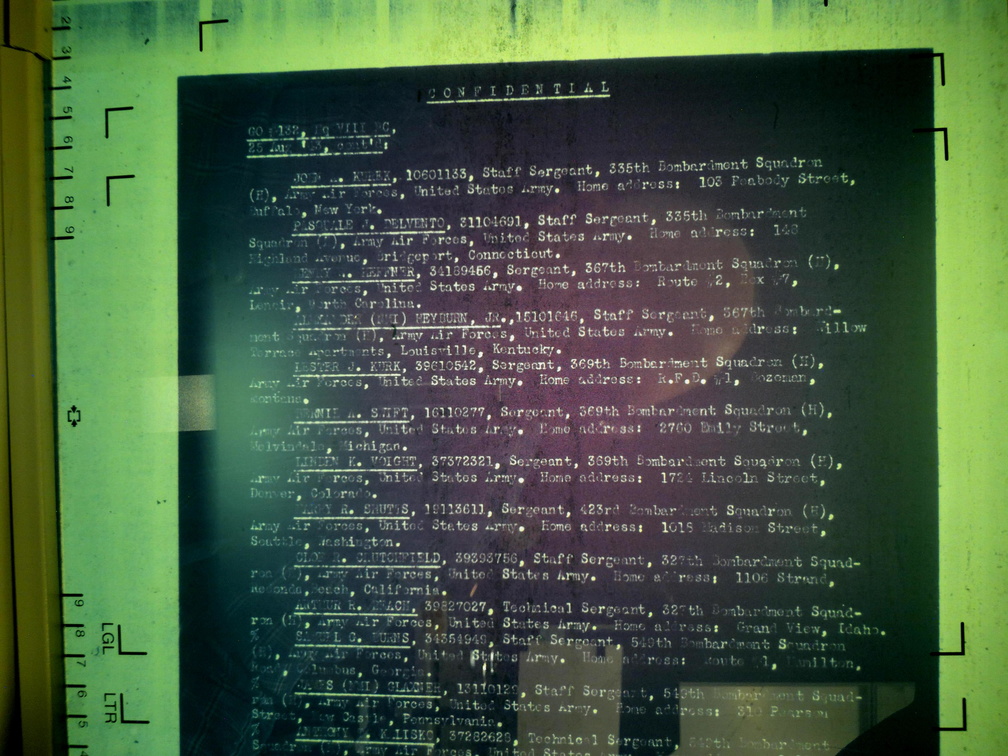 CONFIDENTIAL
GO #132, Hq VIII BC,
25 Aug
10601133, Staff Sergeant, 335th Bombardment Squadron
(H), Army Air Forces, United States Army. Home address: 103 Peabody Street,
Buffalo, New York.
PASQUALE J. DELVENTO, 31104691, Staff Sergeant, 335th Bombardment
Squadron (H), Army Air Forces, United States Army. Home address: 148
Highland Avenue, Bridgeport, Connecticut.
HEFFNER, 34189456, Sergeant, 367th Bombardment Squadron (H),
Army Air Forces, United States Army. Home address: Route #2, Box #7,
Lenoir, North Carolina.
ALEXANDER (NMI) HEYBURN, JR., 15101646, Staff Sergeant, 367th Bombard-
ment Squadron (H), Army Air Forces, United States Army. Home address: Willow
Terrace Apartments, Louisville, Kentucky.
LESTER J. KURK, 39610542, Sergeant, 369th Bombardment Squadron (H),
Army Air Forces, United States Army. Home address: R.F.D. #1, Bozeman,
Montana.
BERNIE A. SWIFT, 16110277, Sergeant, 369th Bombardment Squadron (H),
Army Air Forces, United States Army. Home address: 2760 Emily Street,
Melvindale, Michigan.
LINDEN K. VOIGHT, 37372321, Sergeant, 369th Bombardment Squadron (H),
Army Air Forces, United States Army. Home address: 1724 Lincoln Street,
Denver, Colorado.
R. SHUTTS, 19113611, Sergeant, 423rd Bombardment Squadron (H),
Army Air Forces, United States Army. Home address: 1018 Madison Street,
Seattle, Washington.
R. CLUTCHFIELD, 39393756, Staff Sergeant, 327th Bombardment Squad-
ron (H), Army Air Forces, United States Army. Home address: 1106 Strand,
Redondo Beach, California.
ARTHUR R. 39827027, Technical Sergeant, 327th Bombardment Squad-
ron (H), Army Air Forces, United States Army. Home address: Grand View, Idaho.
SAMUEL C. BURNS, 34354949, Staff Sergeant, 549th Bombardment Squadron
(H), Army Air Forces, United States Army. Home address: Route #1, Hamilton,
Road, Columbus, Georgia.
JAMES (NMI) 1311012 Staff Sergeant, 549th Bombardment Squad-
ron (H), Army Air Forces, United States Army. Home address: 310 Pearson
Street, New Castle, Pennsylvania.
37282629, Technical Sergeant, Bombardment
Army Air Forces, United States
2
3
4
5
6
7
8
9
9
8
7
6
5
4
LGL
LTR